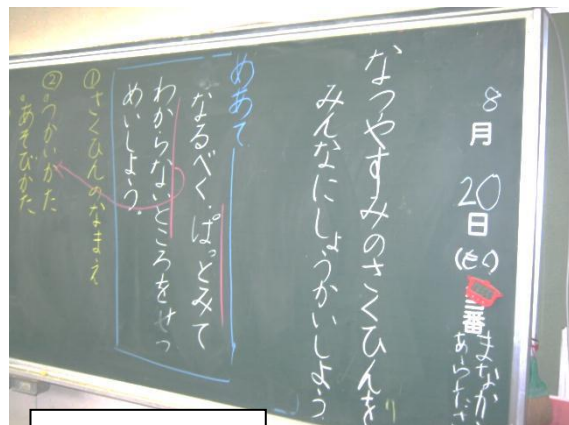 8月20日(もく)
まなか
あらたさ
なつやすみのさくひんを
みんなにしょうかいしよう
めあて
なるべく、ぱっとみて
わからないところをせつ
めいしよう。
①さくひんのなまえ
②・つかいかた
・あそびかた